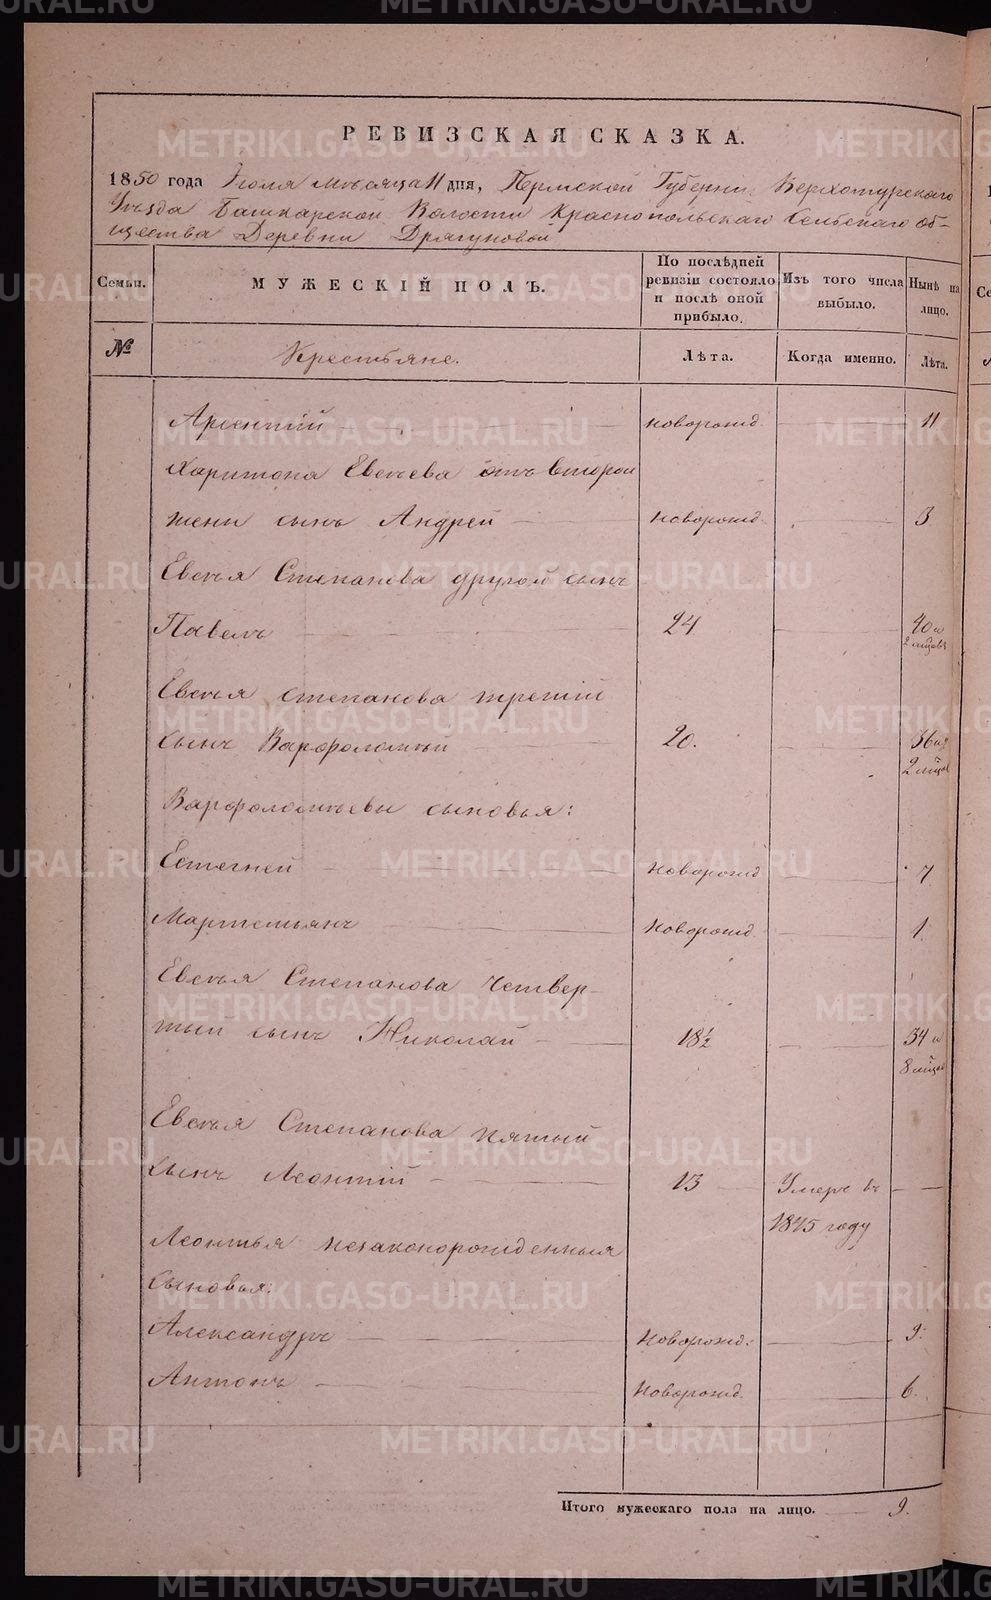 РЕВИЗСКАЯ СКАЗКА.
1850 года Июля мѣсяца 11 дня, Пермской Губерніи Верхотурскаго
Уѣзда Башкарской Волости Краснопольскаго Сельскаго об-
щества Деревни Драгуновой
Семьи. МУЖЕСКІЙ ПОЛЪ. По послѣдней ревизіи состояло и послѣ оной прибыло. Изъ того числа выбыло. Нынѣ на лицо.
№ Крестьяне. Лѣта. Когда именно. Лѣта.
Арсентій новорожд. 11
Харитона Евсѣева отъ второй
жены сынъ Андрей новорожд. 3
Евсѣя Степанова другой сынъ
Павелъ 24 40 и
2 мѣцовъ
Евсѣя Степанова третій
сынъ Варфоломѣй 20. 36 и
2 мѣцов
Варфоломѣевы сыновья:
Естегней Новорожд 7
Мартемьянъ Новорожд. 1.
Евсѣя Степанова Четвер-
тый сынъ Николай 18½ 34 и
8 мѣцов
Евсѣя Степанова пятый
сынъ Леонтій 13 Умеръ въ
1845 году
Леонтья незаконорожденныя
сыновья:
Александръ Новорожд: 9.
Антонъ Новорожд. 6.
Итого мужескаго пола на лицо. 9.
METRIKI.GASO-URAL.RU